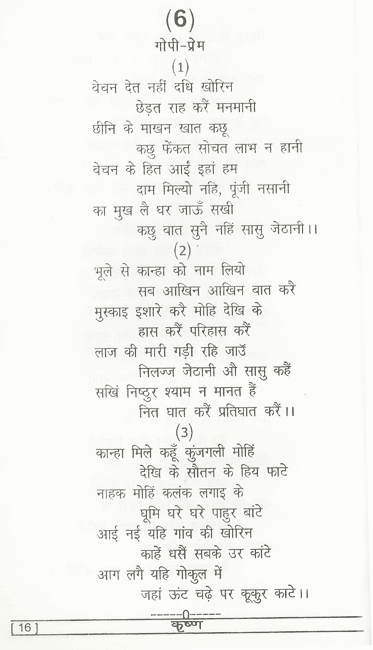 (6)
गोपी-प्रेम
(1)
वेचन देत नहीं दधि खोरिन
छेड़त राह करैं मनमानी
छीनि के माखन खात कछू
कछु फेंकत सोचत लाभ न हानी
वेचन के हित आईं इहां हम
दाम मिल्यो नहि, पूंजी नसानी
का मुख लै घर जाऊँ सखी
कछु वात सुनै नहिं सासु जेठानी।।
(2)
भूले से कान्हा को नाम लियो
सब आखिन आखिन वात करै
मुस्काइ इशारे करै मोहि देखि के
हास करैं परिहास करैं
लाज की मारी गड़ी रहि जाउँ
निलज्ज जेठानी औ सासु कहैं
सखिं निष्ठुर श्याम न मानत हैं
नित घात करैं प्रतिघात करैं।।
(3)
कान्हा मिले कहूँ कुंजगली मोहिं
देखि के सौतन के हिय फाटे
नाहक मोहिं कलंक लगाइ के
घूमि घरे घरे पाहुर बांटे
आई नई यहि गांव की खोरिन
काहें धसैं सबके उर कांटे
आग लगै यहि गोकुल में
जहां ऊंट चढ़े पर कूकुर काटे।।
-----0-----
[ 16 ] कृष्ण